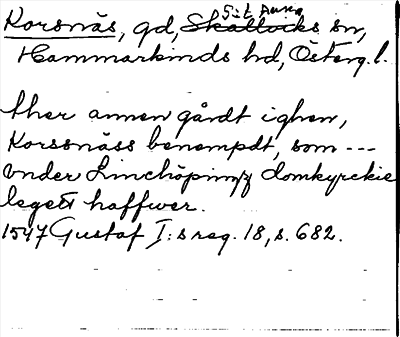 Korsnäs, gd, S:t Anna sn,
Hammarkinds hd, Österg. l.
ther annen gårdt ighen,
Korssnäss benempdt, som ---
vnder Linchöpingz domkyrckie
legett haffwer.
1547 Gustaf I:s reg. 18, s. 682.